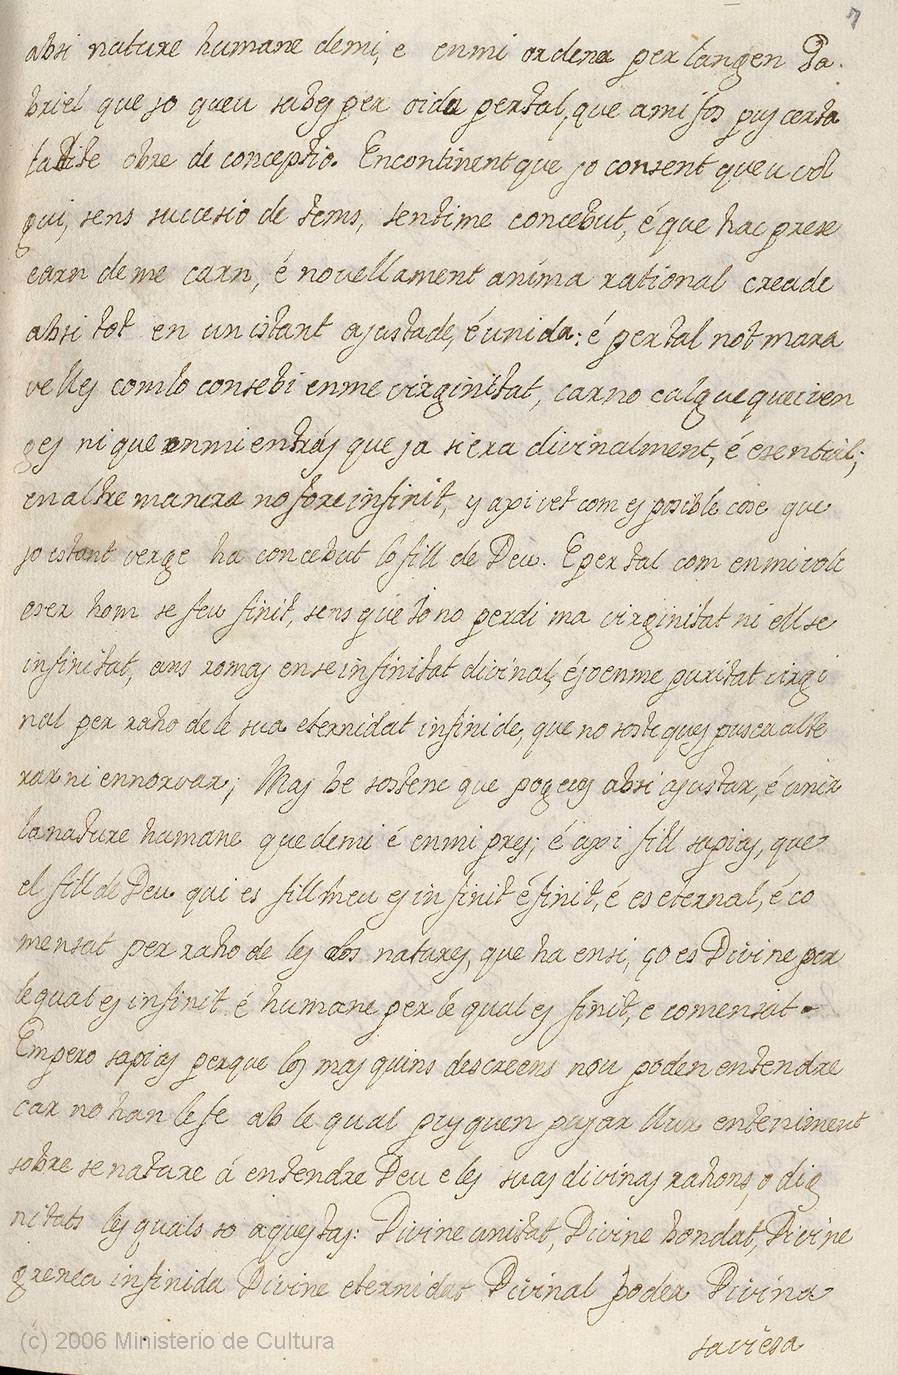 7
absi nature humane demi, e enmi ordena per langen Ga.
briel que jo queu sabes per oida pertal, que ami fos pus certa
latite obre de conceptio. Encontinent que jo consent que u vol
gui, sens succesio de tems, sentime concebut, é que hac prese
carn de me carn, é novellament anima rational creade
absi tot en un istant ajustade, é unida: é per tal not mara
velles com lo consebi enme virginitat, car no calgue que i ven
ges ni que enmi entrás que ja si era divinalment, é esential;
en altre manera no fore infinit, y axi vet com es posible cose que
jo estant verge ha concebut lo fill de Deu. E per tal com enmi volc
eser hom se feu finit, sens que io no perdi ma virginitat ni ell se
infinitat, ans romas en se infinitat divinal, é jo enme puritat virgi
nal per raho de le sua eternidat infinide, que no soste ques pusca alte
rar ni ennorvar; Mas be sostenc que poges absi ajustar, é unir
la nature humane que de mi é enmi pres; é axi fill sapias, que
el fill de Deu qui es fill meu es infinit é finit, é es eternal, é co
mensat per raho de les dos natures, que ha ensi, ço es Divine per
le qual es infinit é humane per lé qual es finit, e comensat.
Empero sapias perque los mesquins descreens nou poden entendre
car no han le fe ab le qual pusquen pujar llur enteniment
sobre se nature á entendre Deu e les suas divinas rahons, o dig
nitats les quals so aquestas: Divine unitat, Divine bondat, Divine
grenea infinida Divine eternidat Divinal poder Divina
saviesa
(c) 2006 Ministerio de Cultura